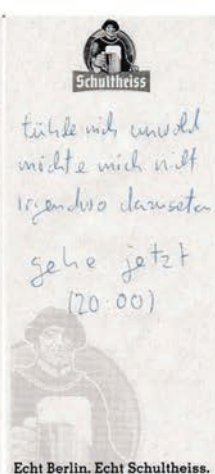 Schultheiss
fühle mich unwohl
möchte mich nicht
irgendwo dazusetzen
gehe jetzt
(20:00)
Echt Berlin. Echt Schultheiss.